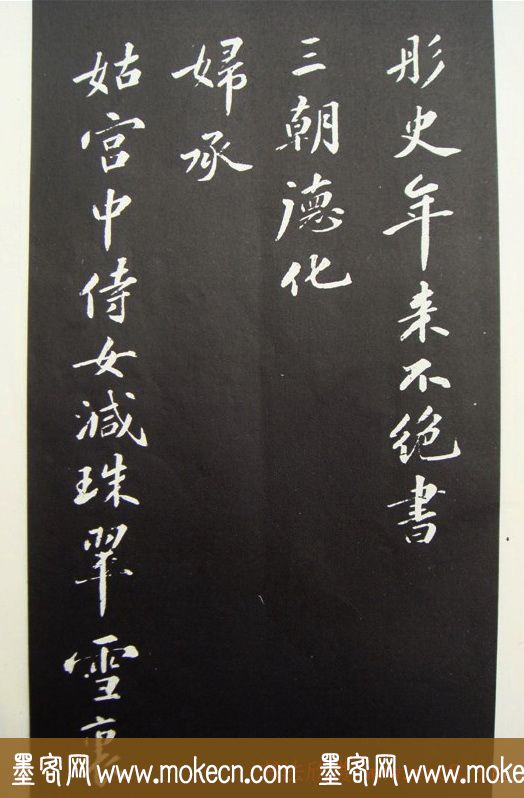 彤史年来不絶書
三朝德化
婦承
姑宫中侍女減珠翠雪裏
墨客网 www.mokecn.com 墨客网 www.mokecn.com